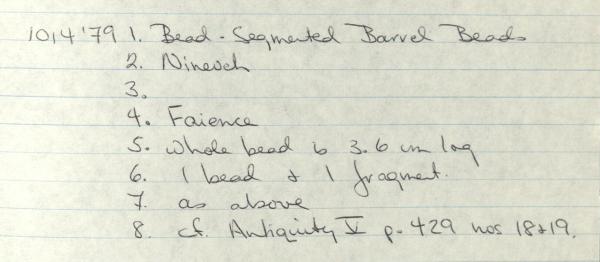 1014'79 1. Bead - Segmented Barrel Beads
2. Nineveh
3.
4. Faience
5. whole bead is 3.6 cm long
6. 1 bead & 1 fragment.
7. as above
8. cf. Antiquity V p. 429 nos 18 & 19.